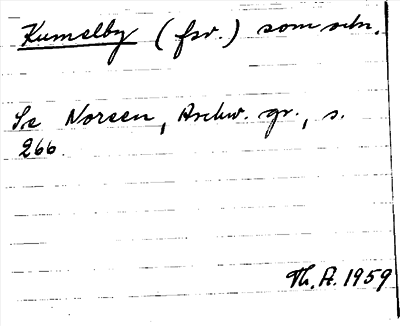 Kumelby (fsv.) som ortn.
Se Noreen, Aschw. gr., s.
266.
Th. A. 1959